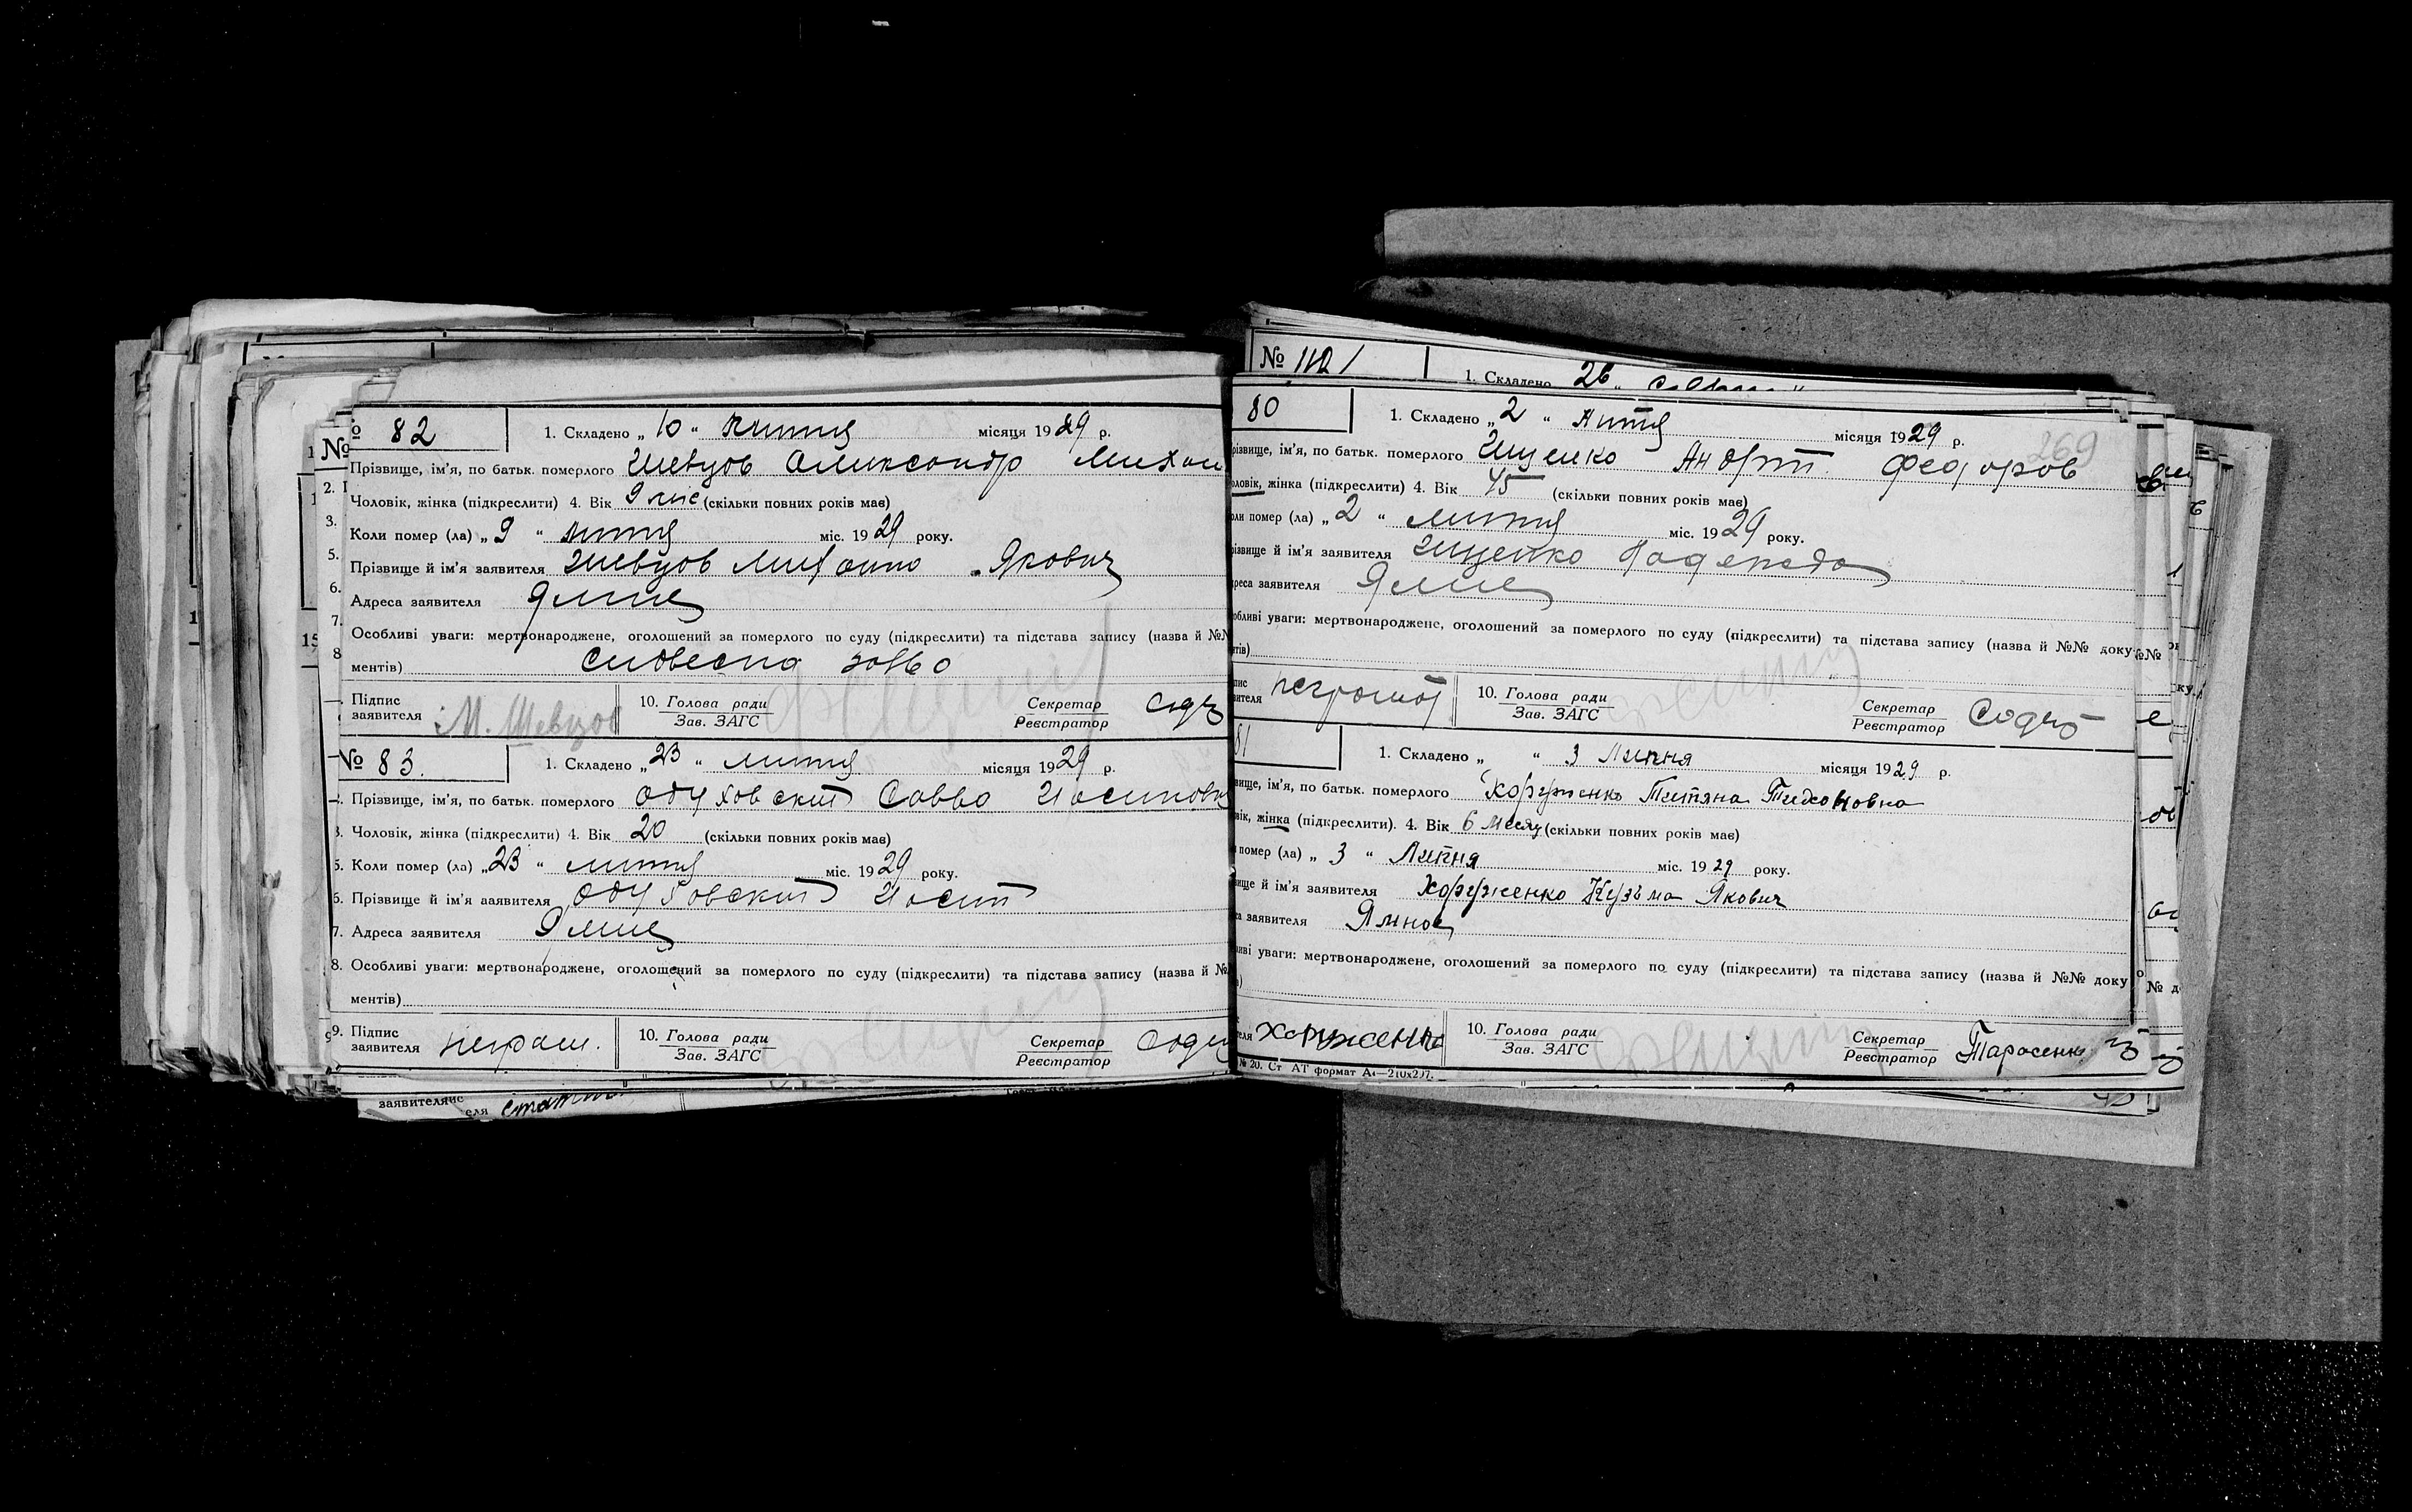 № 82
1. Складено „10“ липня місяця 1929 р.
Прізвище, ім'я, по батьк. померлого Шевцов Александр Михаи
Чоловік, жінка (підкреслити) 4. Вік 9 міс (скільки повних років має)
Коли помер (ла) „9“ липня міс. 1929 року.
Прізвище й ім'я заявителя Шевцов Михаило Якович
Адреса заявителя Ямне
Особливі уваги: мертвонароджене, оголошений за померлого по суду (підкреслити) та підстава запису (назва й №№
ментів) словесна
Підпис заявителя М. Шевцов 10. Голова ради Зав. ЗАГС Секретар Реєстратор
№ 83.
1. Складено „23“ липня місяця 1929 р.
Прізвище, ім'я, по батьк. померлого Одуховский Савва Иосипови
3. Чоловік, жінка (підкреслити) 4. Вік 20 (скільки повних років має)
5. Коли помер (ла) „23“ липня міс. 1929 року.
6. Прізвище й ім'я заявителя Одуховский Иосип
7. Адреса заявителя Ямне
8. Особливі уваги: мертвонароджене, оголошений за померлого по суду (підкреслити) та підстава запису (назва й №
ментів)
9. Підпис заявителя неграм. 10. Голова ради Зав. ЗАГС Секретар Реєстратор
№ 112
1. Складено 26
80
1. Складено „2“ липня місяця 1929 р.
269
різвище, ім'я, по батьк. померлого Ищенко Андрій Федоров
ловік, жінка (підкреслити) 4. Вік 45 (скільки повних років має)
ли помер (ла) „2“ липня міс. 1929 року.
різвище й ім'я заявителя Ищенко
реса заявителя Ямне
обливі уваги: мертвонароджене, оголошений за померлого по суду (підкреслити) та підстава запису (назва й №№ доку
нтів)
пис вителя неграмот 10. Голова ради Зав. ЗАГС Секретар Реєстратор
81
1. Складено „ “ 3 Липня місяця 1929 р.
вище, ім'я, по батьк. померлого Хоруженко Титяна Тихоновна
вік, жінка (підкреслити). 4. Вік 6 месяц (скільки повних років має)
помер (ла) „3“ Липня міс. 1929 року.
вище й ім'я заявителя Хоруженко Кузьма Якович
а заявителя Ямное
ливі уваги: мертвонароджене, оголошений за померлого по суду (підкреслити) та підстава запису (назва й №№ доку
теля Хоруженко 10. Голова ради Зав. ЗАГС Секретар Реєстратор Тарасенко
№ 20. Ст АТ формат А4—210х297.